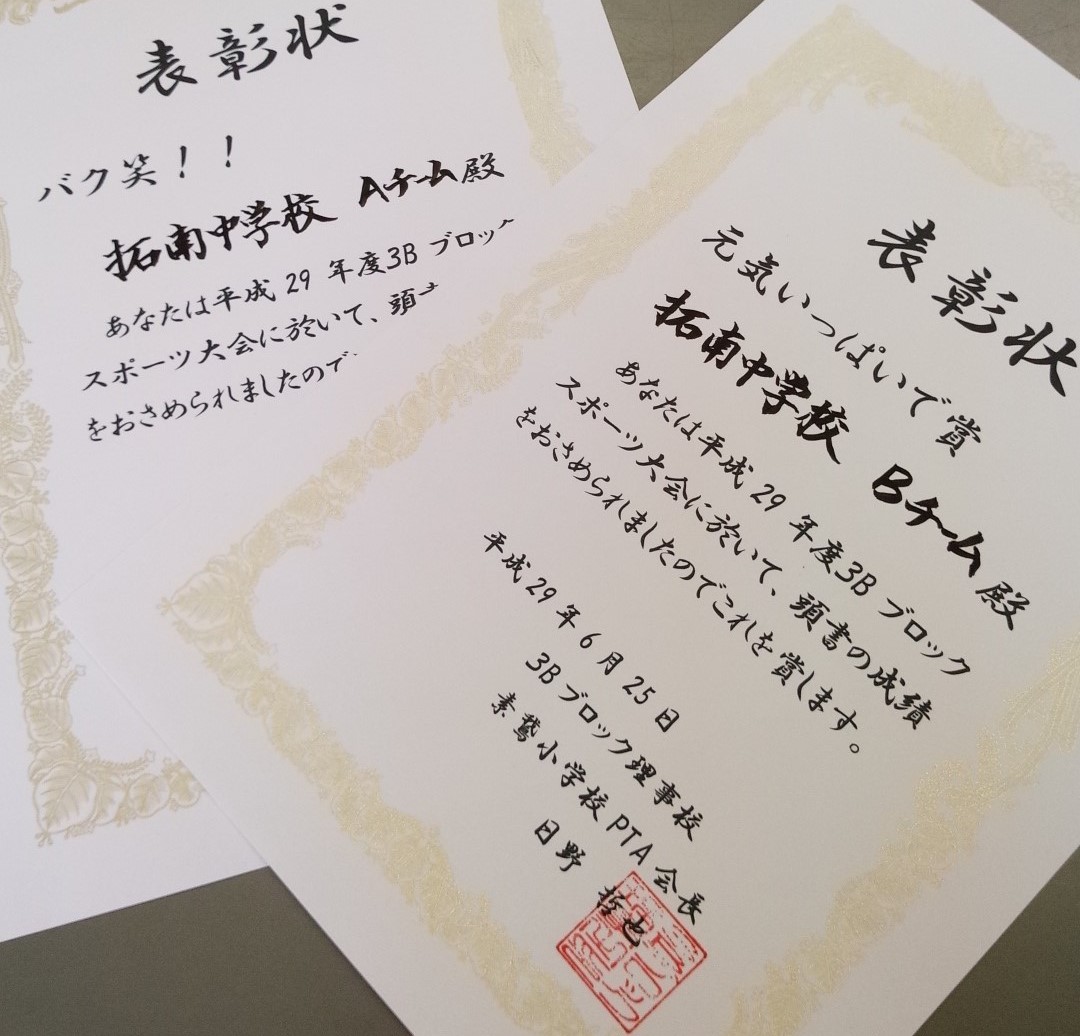 表彰状
バク笑!!
拓南中学校 Aチーム殿
あなたは平成 29 年度3B ブロック
スポーツ大会に於いて、頭
をおさめられましたので
表彰状
元気いっぱいで賞
拓南中学校 Bチーム殿
あなたは平成 29 年度3B ブロック
スポーツ大会に於いて、頭書の成績
をおさめられましたのでこれを賞します。
平成 29 年 6 月 25 日
3B ブロック理事校
素鵞小学校 PTA 会長
日野 哲也